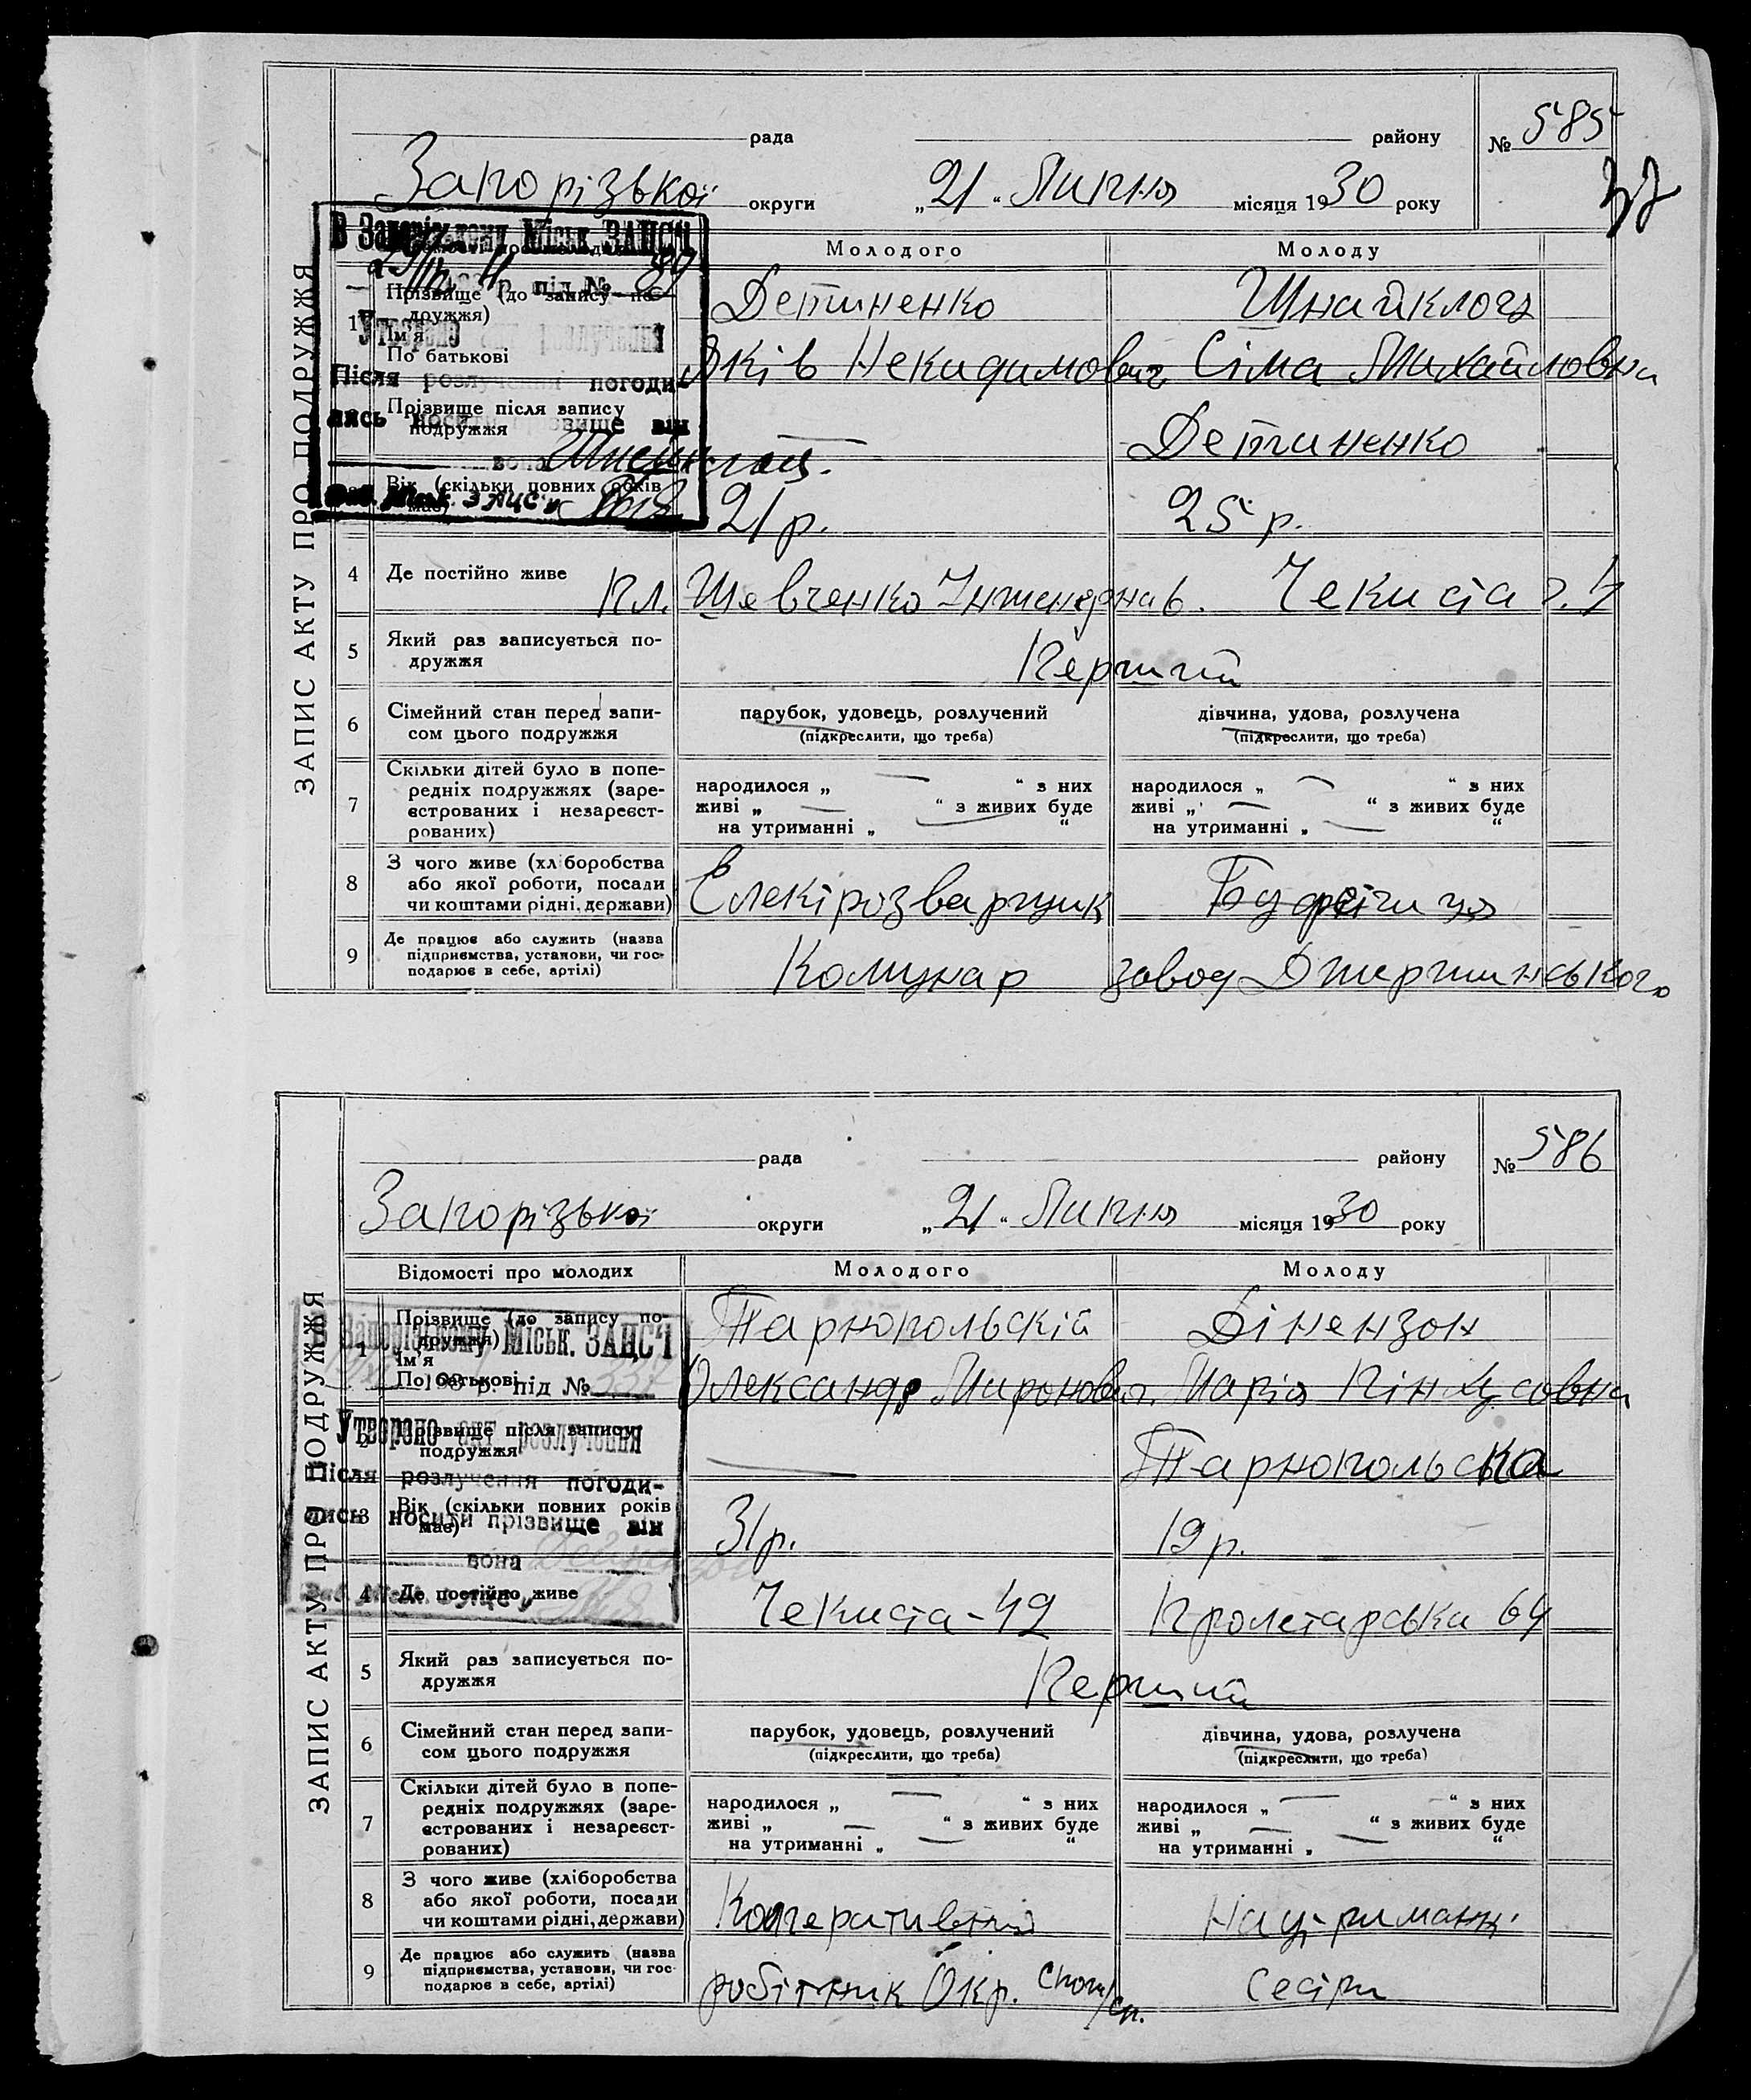 ЗАПИС АКТУ ПРО ПОДРУЖЖЯ
рада району № 585
37
Запорізької округи „21“ Липня місяця 1930 року
В Запорізькому Міськ. ЗАГСʼі
р. під №
Утворено акт розлучення
Після розлучення погоди-
лись носити прізвище він
вона
Молодого Молоду
1 Прізвище (до запису по-
дружжя)
Імʼя
По батькові
Детиненко
Яків
Сіма Михайловна
Прізвище після запису
подружжя
Детиненко
Вік (скільки повних років
має)
21 р. 25 р.
4 Де постійно живе
пл. Шевченко Інженерна 6. Чекиста
5 Який раз записується по-
дружжя
Перший
6 Сімейний стан перед запи-
сом цього подружжя
парубок, удовець, розлучений
(підкреслити, що треба)
дівчина, удова, розлучена
(підкреслити, що треба)
7 Скільки дітей було в попе-
редніх подружжях (заре-
єстрованих і незареєст-
рованих)
народилося „ — “ з них
живі „ — “ з живих буде
на утриманні „ — “
народилося „ — “ з них
живі „ — “ з живих буде
на утриманні „ — “
8 З чого живе (хліборобства
або якої роботи, посади
чи коштами рідні, держави)
Електрозварщик
9 Де працює або служить (назва
підприємства, установи, чи гос-
подарює в себе, артілі)
Комунар завод Джержинського
ЗАПИС АКТУ ПРО ПОДРУЖЖЯ
рада району № 586
Запорізької округи „21“ Липня місяця 1930 року
Відомості про молодих Молодого Молоду
В Запорізькому Міськ. ЗАГСʼі
193 р. під № 337
Утворено акт розлучення
Після розлучення погоди-
лись носити прізвище він
вона
1 Прізвище (до запису по-
дружжя)
Імʼя
По батькові
Тарнопольскій Дінензон
Олександр Миронович Марія Пінхусовна
2 Прізвище після запису
подружжя
— Тарнопольська
3 Вік (скільки повних років
має)
31 р. 19 р.
4 Де постійно живе
Чекиста-42 Пролетарська 64
5 Який раз записується по-
дружжя
Перший
6 Сімейний стан перед запи-
сом цього подружжя
парубок, удовець, розлучений
(підкреслити, що треба)
дівчина, удова, розлучена
(підкреслити, що треба)
7 Скільки дітей було в попе-
редніх подружжях (заре-
єстрованих і незареєст-
рованих)
народилося „ — “ з них
живі „ — “ з живих буде
на утриманні „ — “
народилося „ — “ з них
живі „ — “ з живих буде
на утриманні „ — “
8 З чого живе (хліборобства
або якої роботи, посади
чи коштами рідні, держави)
Коперативний На утриманні
9 Де працює або служить (назва
підприємства, установи, чи гос-
подарює в себе, артілі)
робітник Окр. Сестри